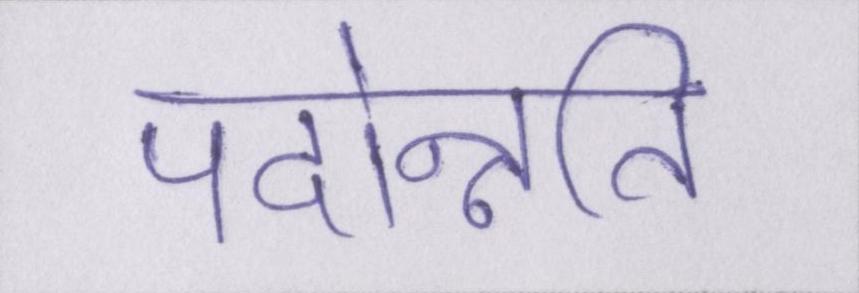 पदोन्नति